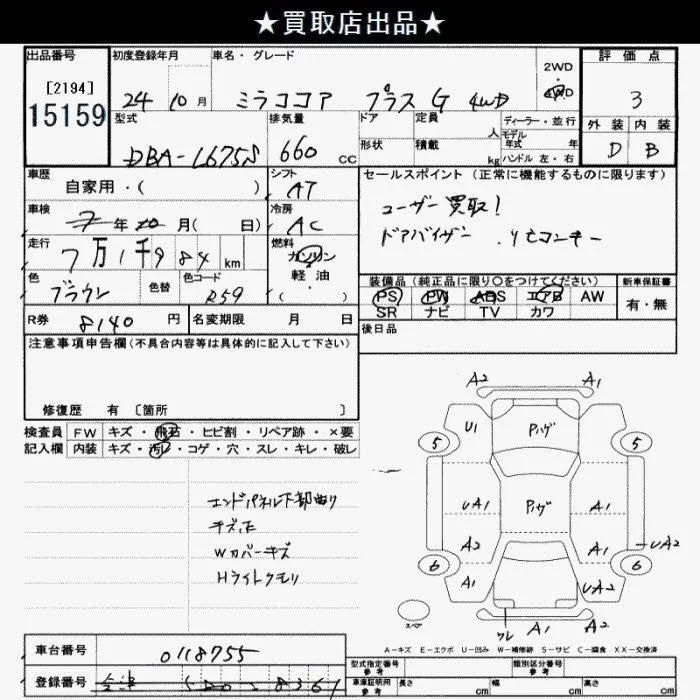 ★買取店出品★
出品番号
[2194]
15159
初度登録年月
24 10 月
車名・グレード
ミラココア プラス G 4WD
2WD
4WD
評価点
3
外装 内装
D B
型式
DBA-L675S
排気量
660 cc
ドア
形状
定員
人
積載
kg
ディーラー・並行
モデル
年式 年
ハンドル 左・右
車歴
自家用・( )
シフト
AT
セールスポイント (正常に機能するものに限ります)
ユーザー買取!
ドアバイザー . リモコンキー
車検
年 月( 日)
冷房
AC
走行
7万1千984 km
燃料
ガソリン
軽・油
( )
色
ブラウン
色替
色コード
R59
装備品 (純正品に限り○をつけてください)
PS PW ABS エアB AW
SR ナビ TV カワ
新車保証書
有・無
R券 8140 円
名変期限 月 日
後日品
注意事項申告欄(不具合内容等は具体的に記入して下さい)
修復歴 有 〔箇所 〕
検査員
記入欄
FW キズ・飛石・ヒビ割・リペア跡・×要
内装 キズ・汚レ・コゲ・穴・スレ・キレ・破レ
エンドパネル下部曲り
チズ正
Wカバーキズ
Hライトクモリ
A2 A1
U1 Pハゲ
5 5
UA1 Pハゲ A1
A2 A1 UA2
6 6
A1 UA2
スペア
ワレ A1 A2
A-キズ E-エクボ U-凹み W-補修跡 S-サビ C-腐食 XX-交換済
車台番号
0118755
登録番号
会津 580 8361
型式指定番号
参考
類別区分番号
参考
車庫証明用
参考
長さ cm
幅 cm
高さ cm